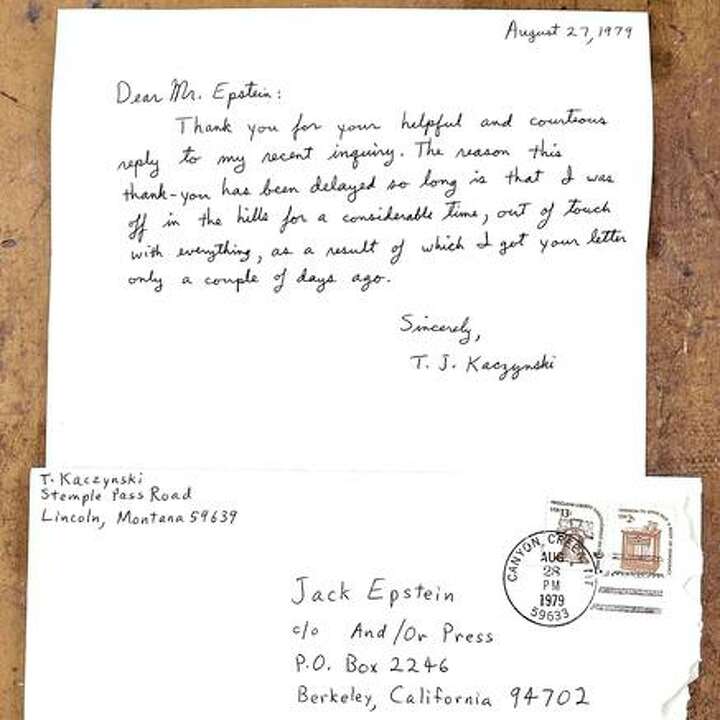 August 27, 1979
Dear Mr. Epstein:
Thank you for your helpful and courteous
reply to my recent inquiry. The reason this
thank-you has been delayed so long is that I was
off in the hills for a considerable time, out of touch
with everything, as a result of which I got your letter
only a couple of days ago.
Sincerely,
T. J. Kaczynski
T. Kaczynski
Stemple Pass Road
Lincoln, Montana 59639
13c
CANYON CREEK, MT
AUG
28
PM
1979
59633
Jack Epstein
c/o And/Or Press
P.O. Box 2246
Berkeley, California 94702